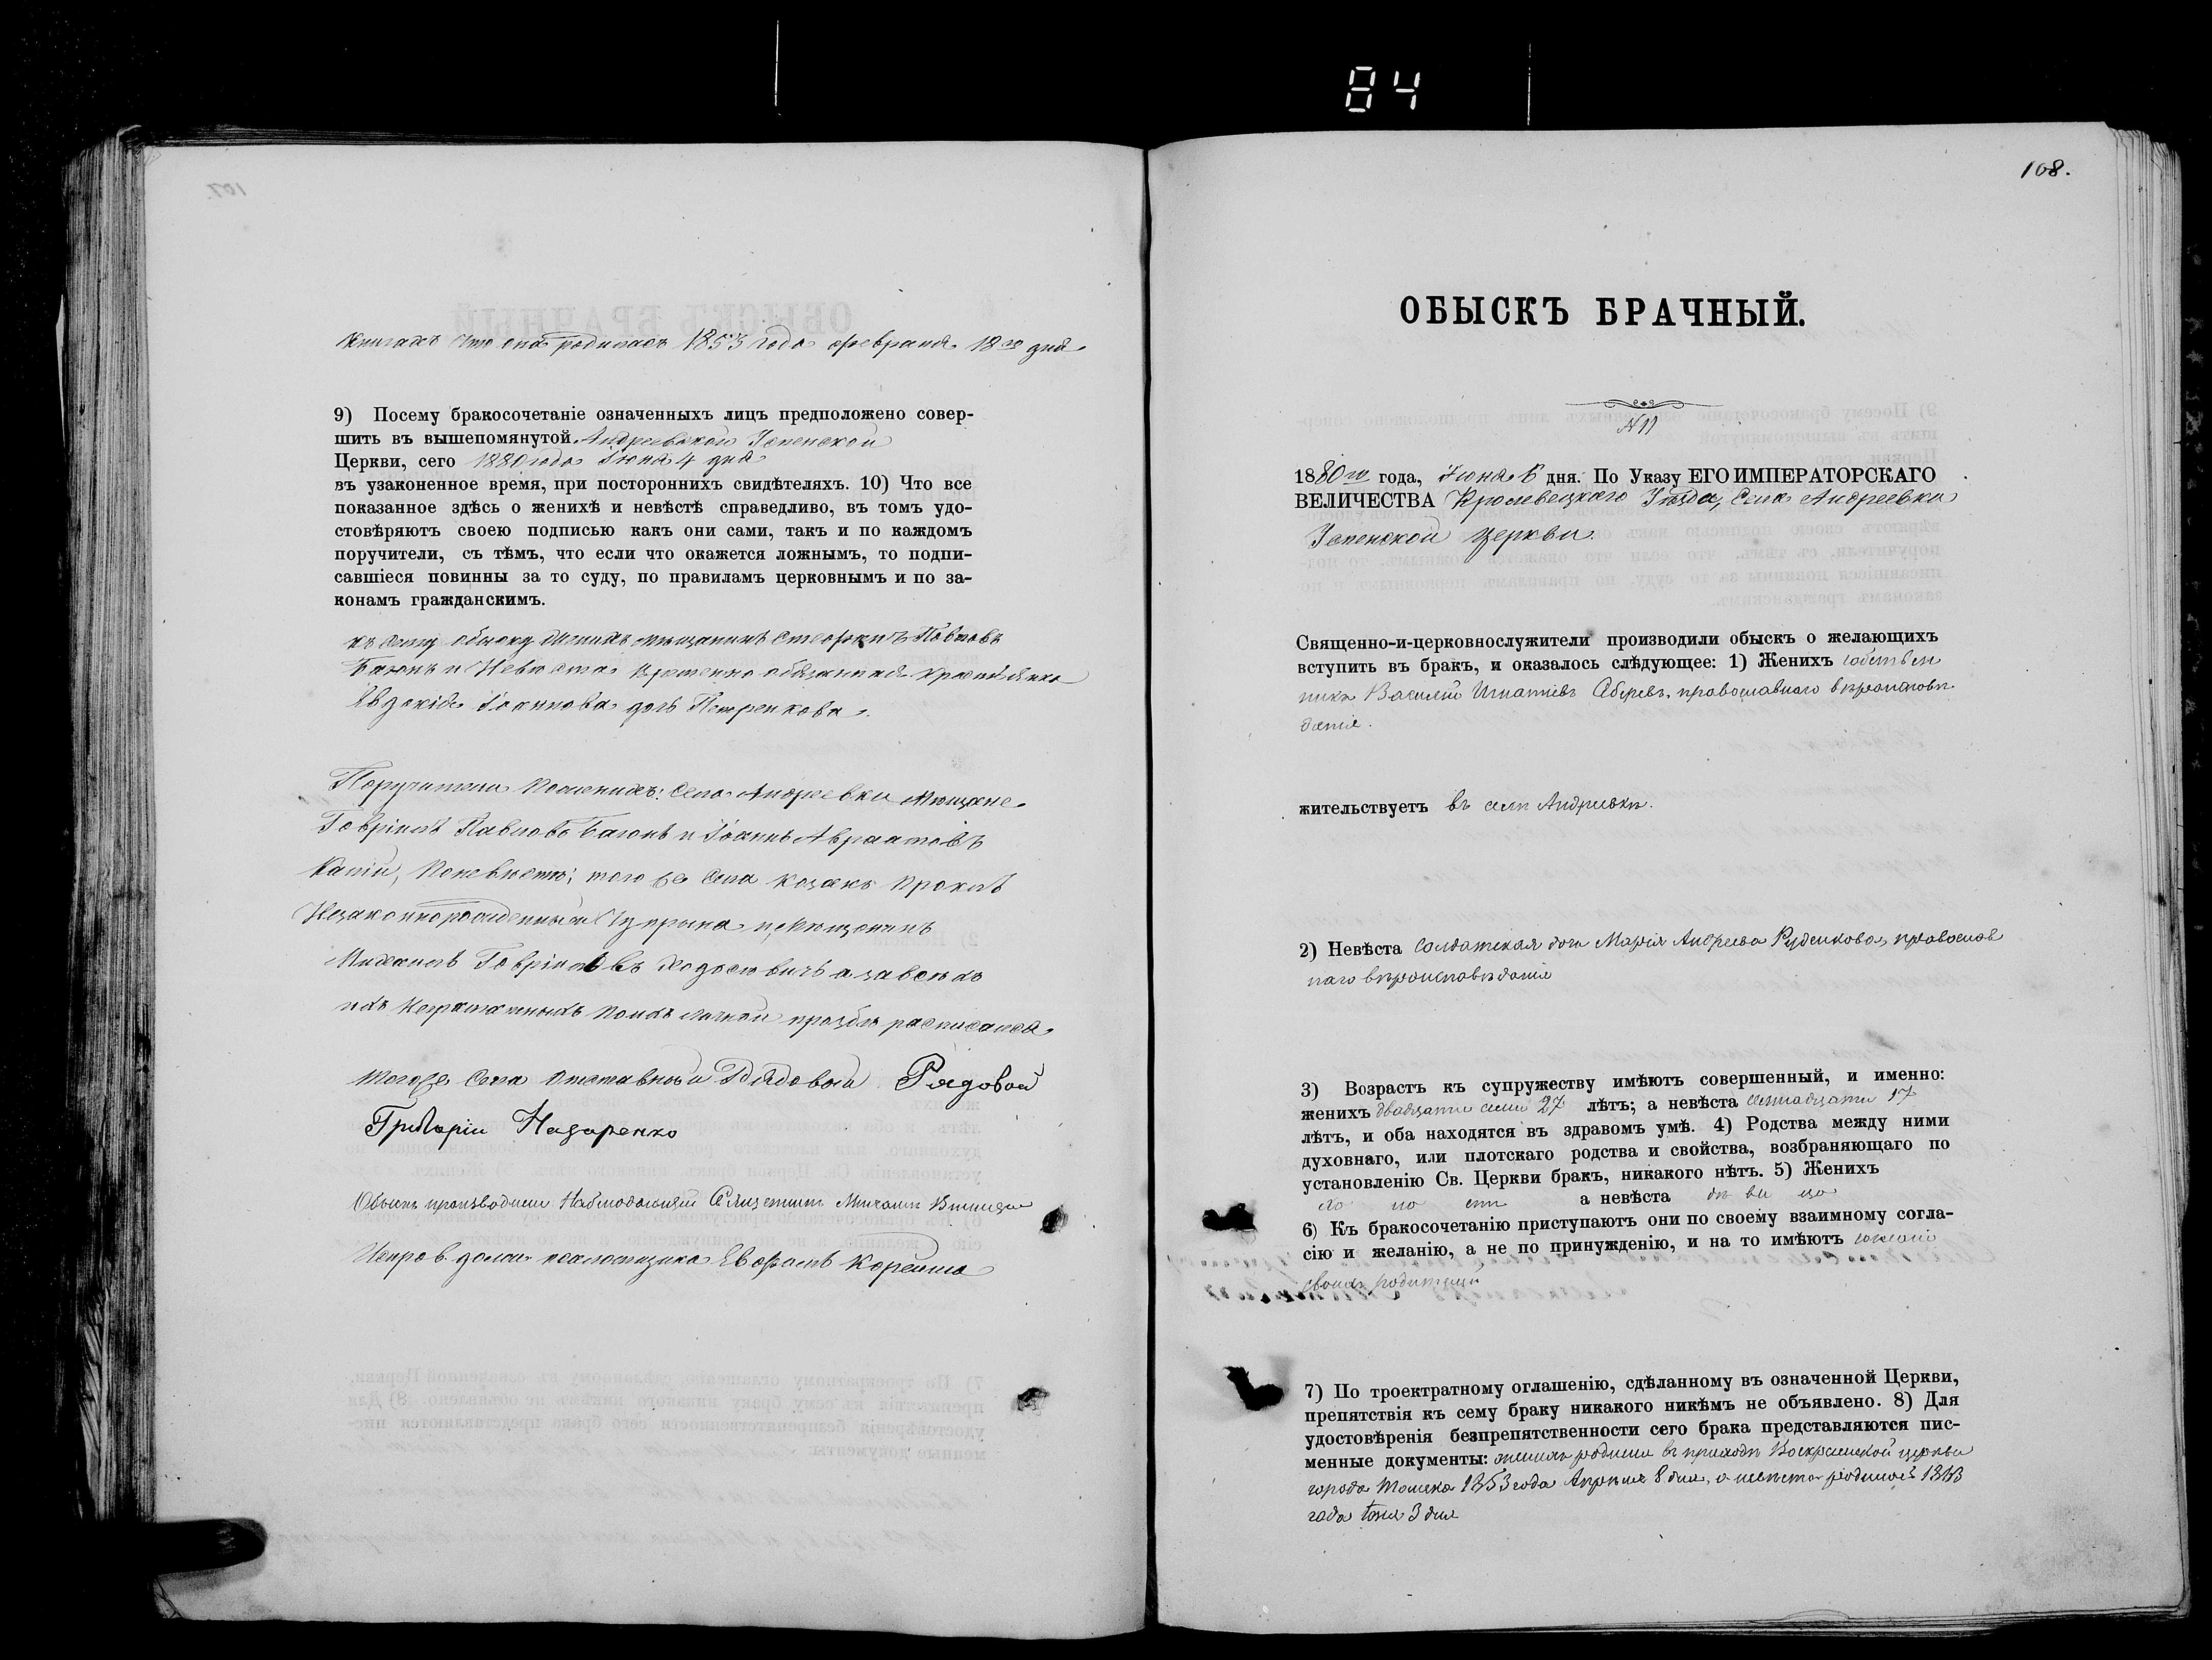 84
107.
книгахъ что она родилась 1853 года февраля 18го дня
9) Посему бракосочетаніе означенныхъ лицъ предположено совер-
шить въ вышепомянутой Андреевской Успенской
Церкви, сего 1880 года Іюня 4 дня
въ узаконенное время, при постороннихъ свидѣтеляхъ. 10) Что все
показанное здѣсь о женихѣ и невѣстѣ справедливо, въ томъ удо-
стовѣряютъ своею подписью какъ они сами, такъ и по каждомъ
поручители, съ тѣмъ, что если что окажется ложнымъ, то подпи-
савшіеся повинны за то суду, по правиламъ церковнымъ и по за-
конамъ гражданскимъ.
къ сему обыску женихъ мещанинъ Павловъ
и Невеста временно обязанная
Евдокія Іоаннова дочь Петренкова.
Поручители Поженихѣ: Села Андреевки Мещане
Гавріилъ Павловъ и Іоаннъ Авраамовъ
Поневѣстѣ; того же Села козакъ
Незаконнорожденный и Мещанинъ
Михаилъ Гавріиловъ а за всехъ
ихъ неграмотныхъ поихъ личной прозбѣ расписался
тогоже Села Отставной Рядовой Рядовой
Григорій Назаренко
Обыскъ производили Наблюдающій Священникъ Михаилъ
Исправ. должн. псаломщика Корейша
108.
ОБЫСКЪ БРАЧНЫЙ.
№ 11
1880го года, Іюня 6 дня. По Указу ЕГО ИМПЕРАТОРСКАГО
ВЕЛИЧЕСТВА Кролевецкаго Уѣзда, Села Андреевки
Успенской Церкви.
Священно-и-церковнослужители производили обыскъ о желающихъ
вступить въ бракъ, и оказалось слѣдующее: 1) Женихъ собствен
никъ Василій Игнатіевъ православнаго вѣроисповѣ
данія.
жительствуетъ въ селѣ Андреевкѣ.
2) Невѣста солдатская дочь Марія Андреева Руденкова, православ
наго вѣроисповѣданія
3) Возрастъ къ супружеству имѣютъ совершенный, и именно:
женихъ двадцати семи 27 лѣтъ; а невѣста семнадцати 17
лѣтъ, и оба находятся въ здравомъ умѣ. 4) Родства между ними
духовнаго, или плотскаго родства и свойства, возбраняющаго по
установленію Св. Церкви бракъ, никакого нѣтъ. 5) Женихъ
холостъ а невѣста дѣвица
6) Къ бракосочетанію приступаютъ они по своему взаимному согла-
сію и желанію, а не по принужденію, и на то имѣютъ
своихъ родителей
7) По троектратному оглашенію, сдѣланному въ означенной Церкви,
препятствія къ сему браку никакого никѣмъ не объявлено. 8) Для
удостовѣренія безпрепятственности сего брака представляются пис-
менные документы: женихъ родился въ приходѣ Воскресенской церкви
города Томска 1853 года Апрѣля 8 дня, а невѣста родилась
года 3 дня